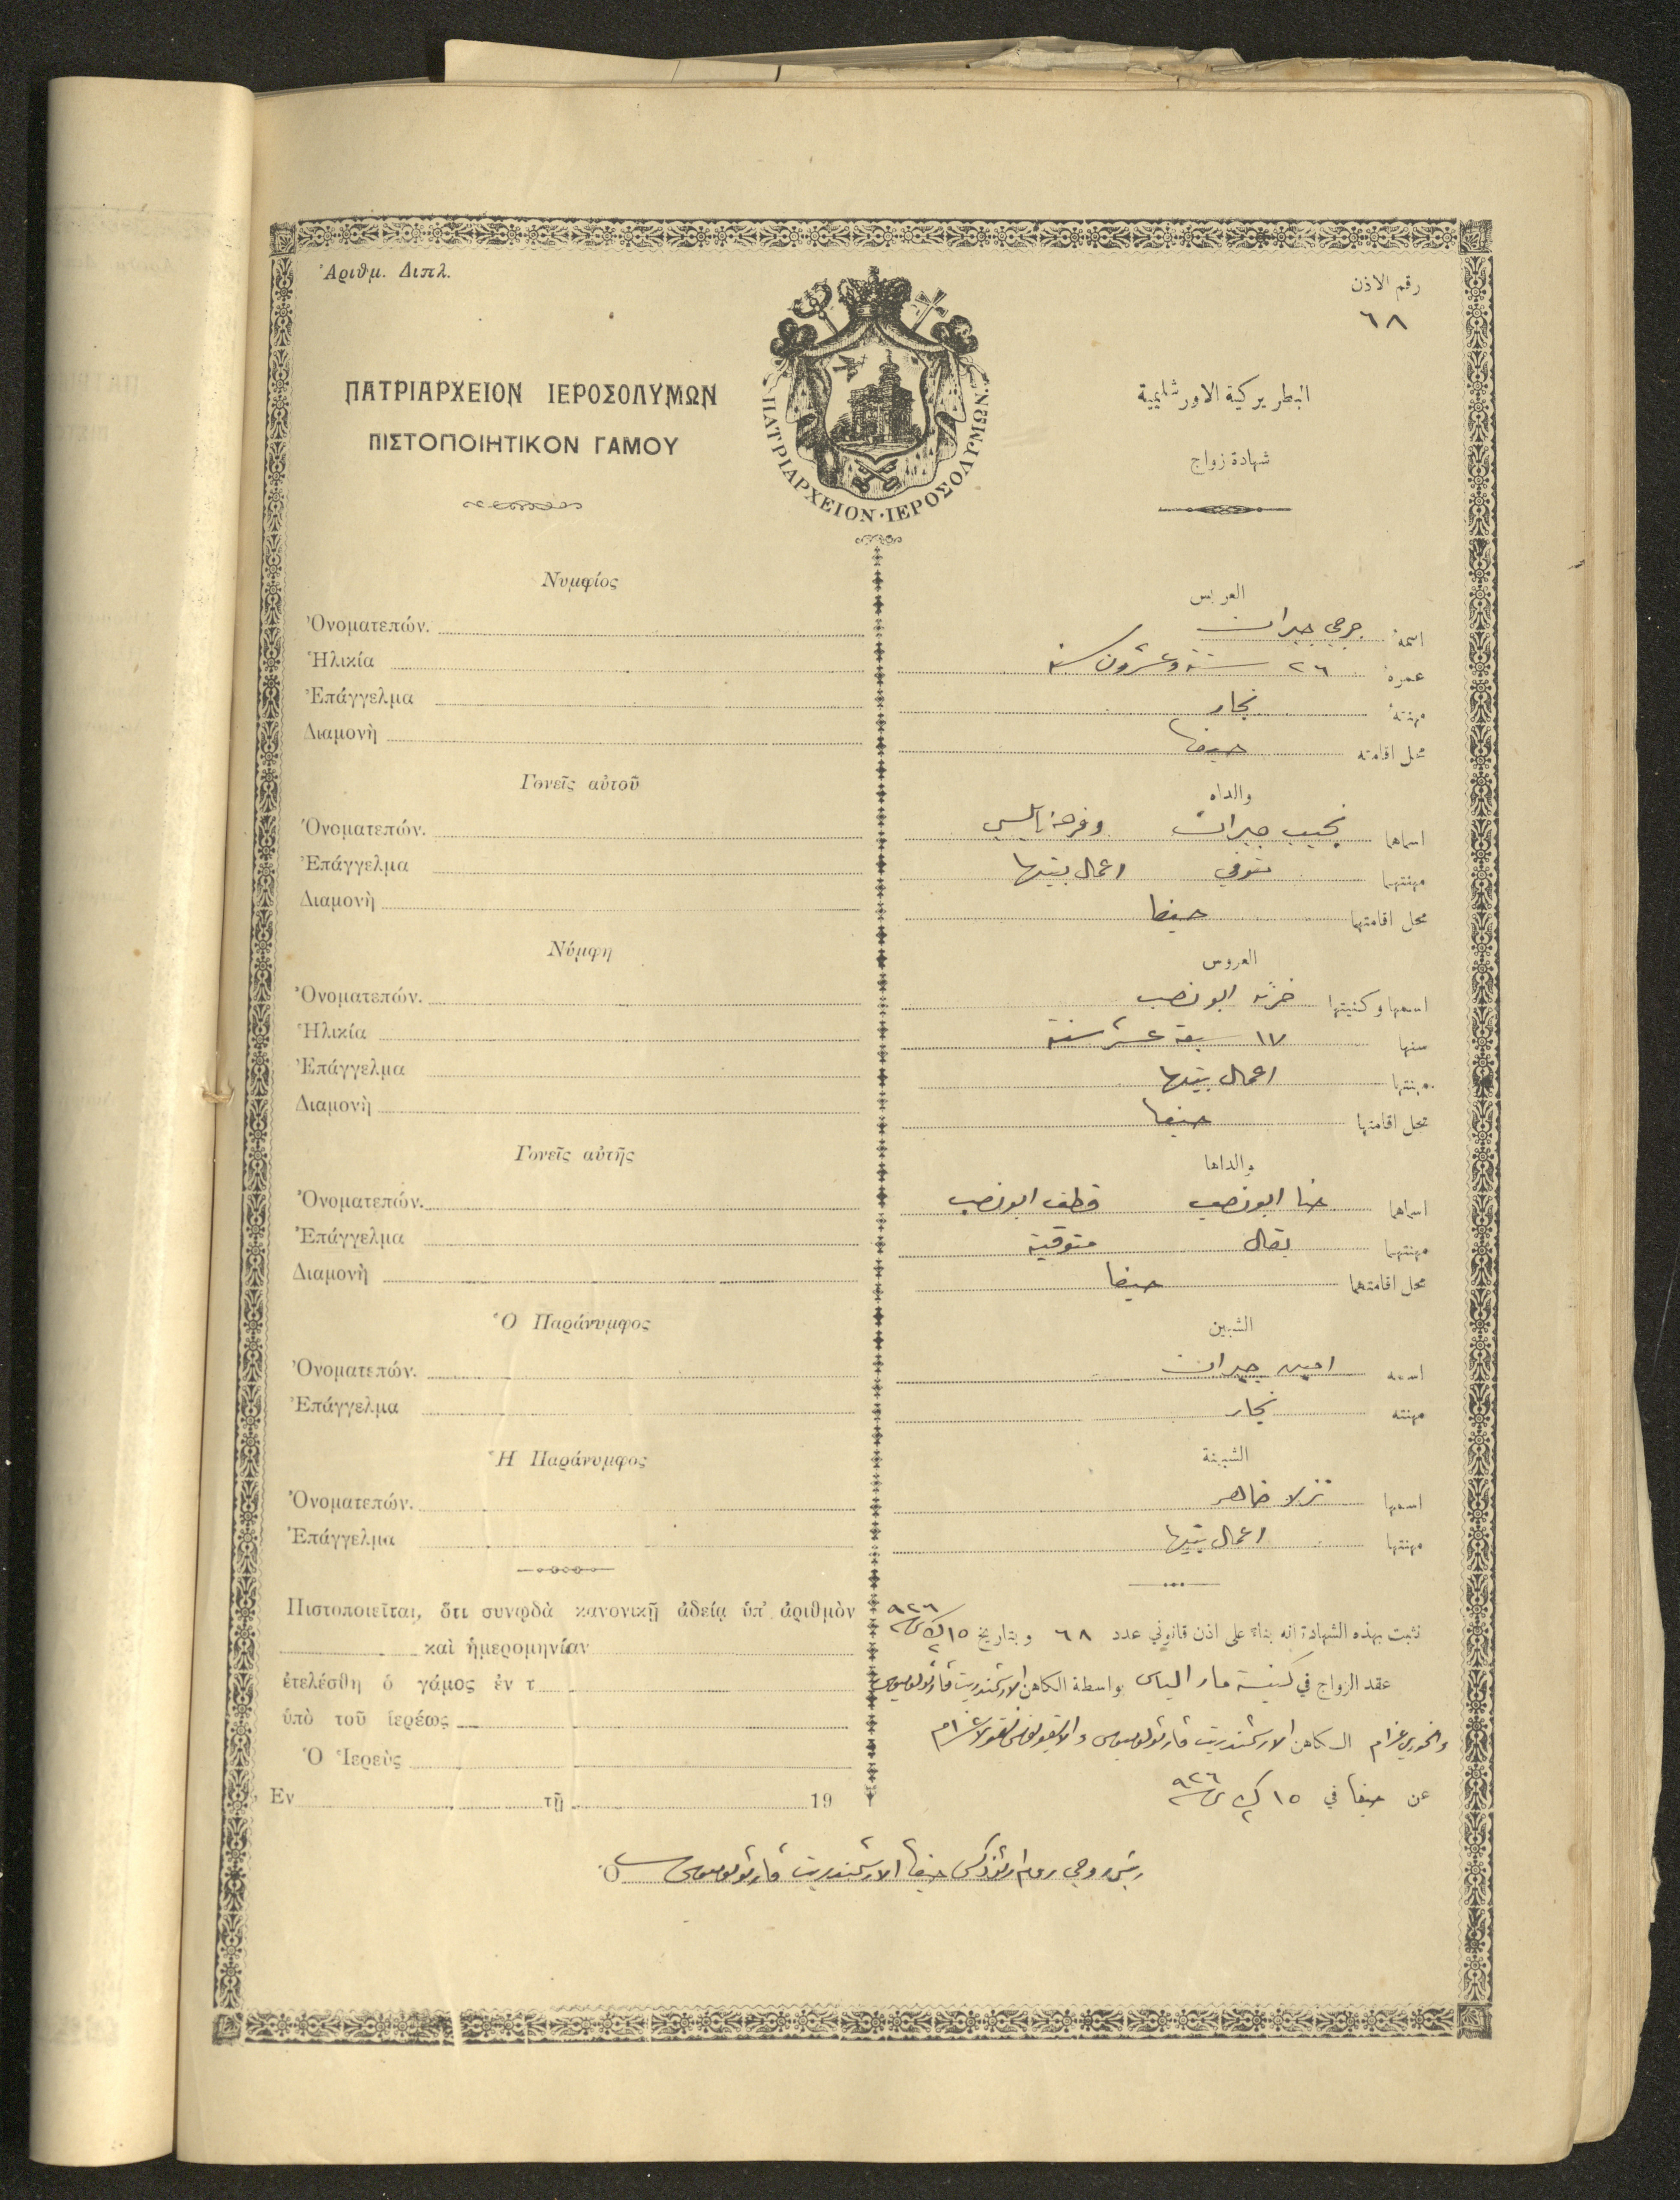 Ἀριθμ. Διπλ.
رقم الاذن
٦٨
ΠΑΤΡΙΑΡΧΕΙΟΝ ΙΕΡΟΣΟΛΥΜΩΝ
ΠΙΣΤΟΠΟΙΗΤΙΚΟΝ ΓΑΜΟΥ
ΠΑΤΡΙΑΡΧΕΙΟΝ·ΙΕΡΟΣΟΛΥΜΩΝ
البطريركية الاورشليمية
شهادة زواج
Νυμφίος
Ὀνοματεπών.
Ἡλικία
Ἐπάγγελμα
Διαμονὴ
Γονεῖς αὐτοῦ
Ὀνοματεπών.
Ἐπάγγελμα
Διαμονὴ
Νύμφη
Ὀνοματεπών.
Ἡλικία
Ἐπάγγελμα
Διαμονὴ
Γονεῖς αὐτῆς
Ὀνοματεπών.
Ἐπάγγελμα
Διαμονὴ
Ὁ Παράνυμφος
Ὀνοματεπών.
Ἐπάγγελμα
Ἡ Παράνυμφος
Ὀνοματεπών.
Ἐπάγγελμα
Πιστοποιεῖται, ὅτι συνῳδὰ κανονικῇ ἀδείᾳ ὑπ' ἀριθμὸν
καὶ ἡμερομηνίαν
ἐτελέσθη ὁ γάμος ἐν τ
ὑπὸ τοῦ ἱερέως
Ὁ Ἱερεὺς
Ἐν τῇ 19
العريس
اسمهُ جرجي جبران
عمرهُ ٢٦ ستة وعشرون سنه
مهنتهُ نجار
محل اقامته حيفا
والداه
اسماهما نجيب جبران وفرحة
مهنتهما متوفي اعمال بيتها
محل اقامتهما حيفا
العروس
اسمها وكنيتها خزنه ابو نصب
سنها ١٧ سبعة عشر سنة
مهنتها اعمال بيتها
محل اقامتها حيفا
والداها
اسماهما حنا ابو نصب قطف ابو نصب
مهنتهما بقال متوفية
محل اقامتهما حيفا
الشبين
اسمه امين جبران
مهنته نجار
الشبينة
اسمها نزلا ضاهر
مهنتها اعمال بيتها
نثبت بهذه الشهادة انه بناءً على اذن قانوني عدد ٦٨ وبتاريخ ١٥ ك٢ سنة ٩٢٦
عقد الزواج في كنيسة مار الياس بواسطة الكاهن الارشمندريت
والخوري عزام الكاهن الارشمندريت عزام
عن حيفا في ١٥ ك٢ سنة ٩٢٦
رئيس روحي روم ارثوذكس حيفا الارشمندريت
Ὁ